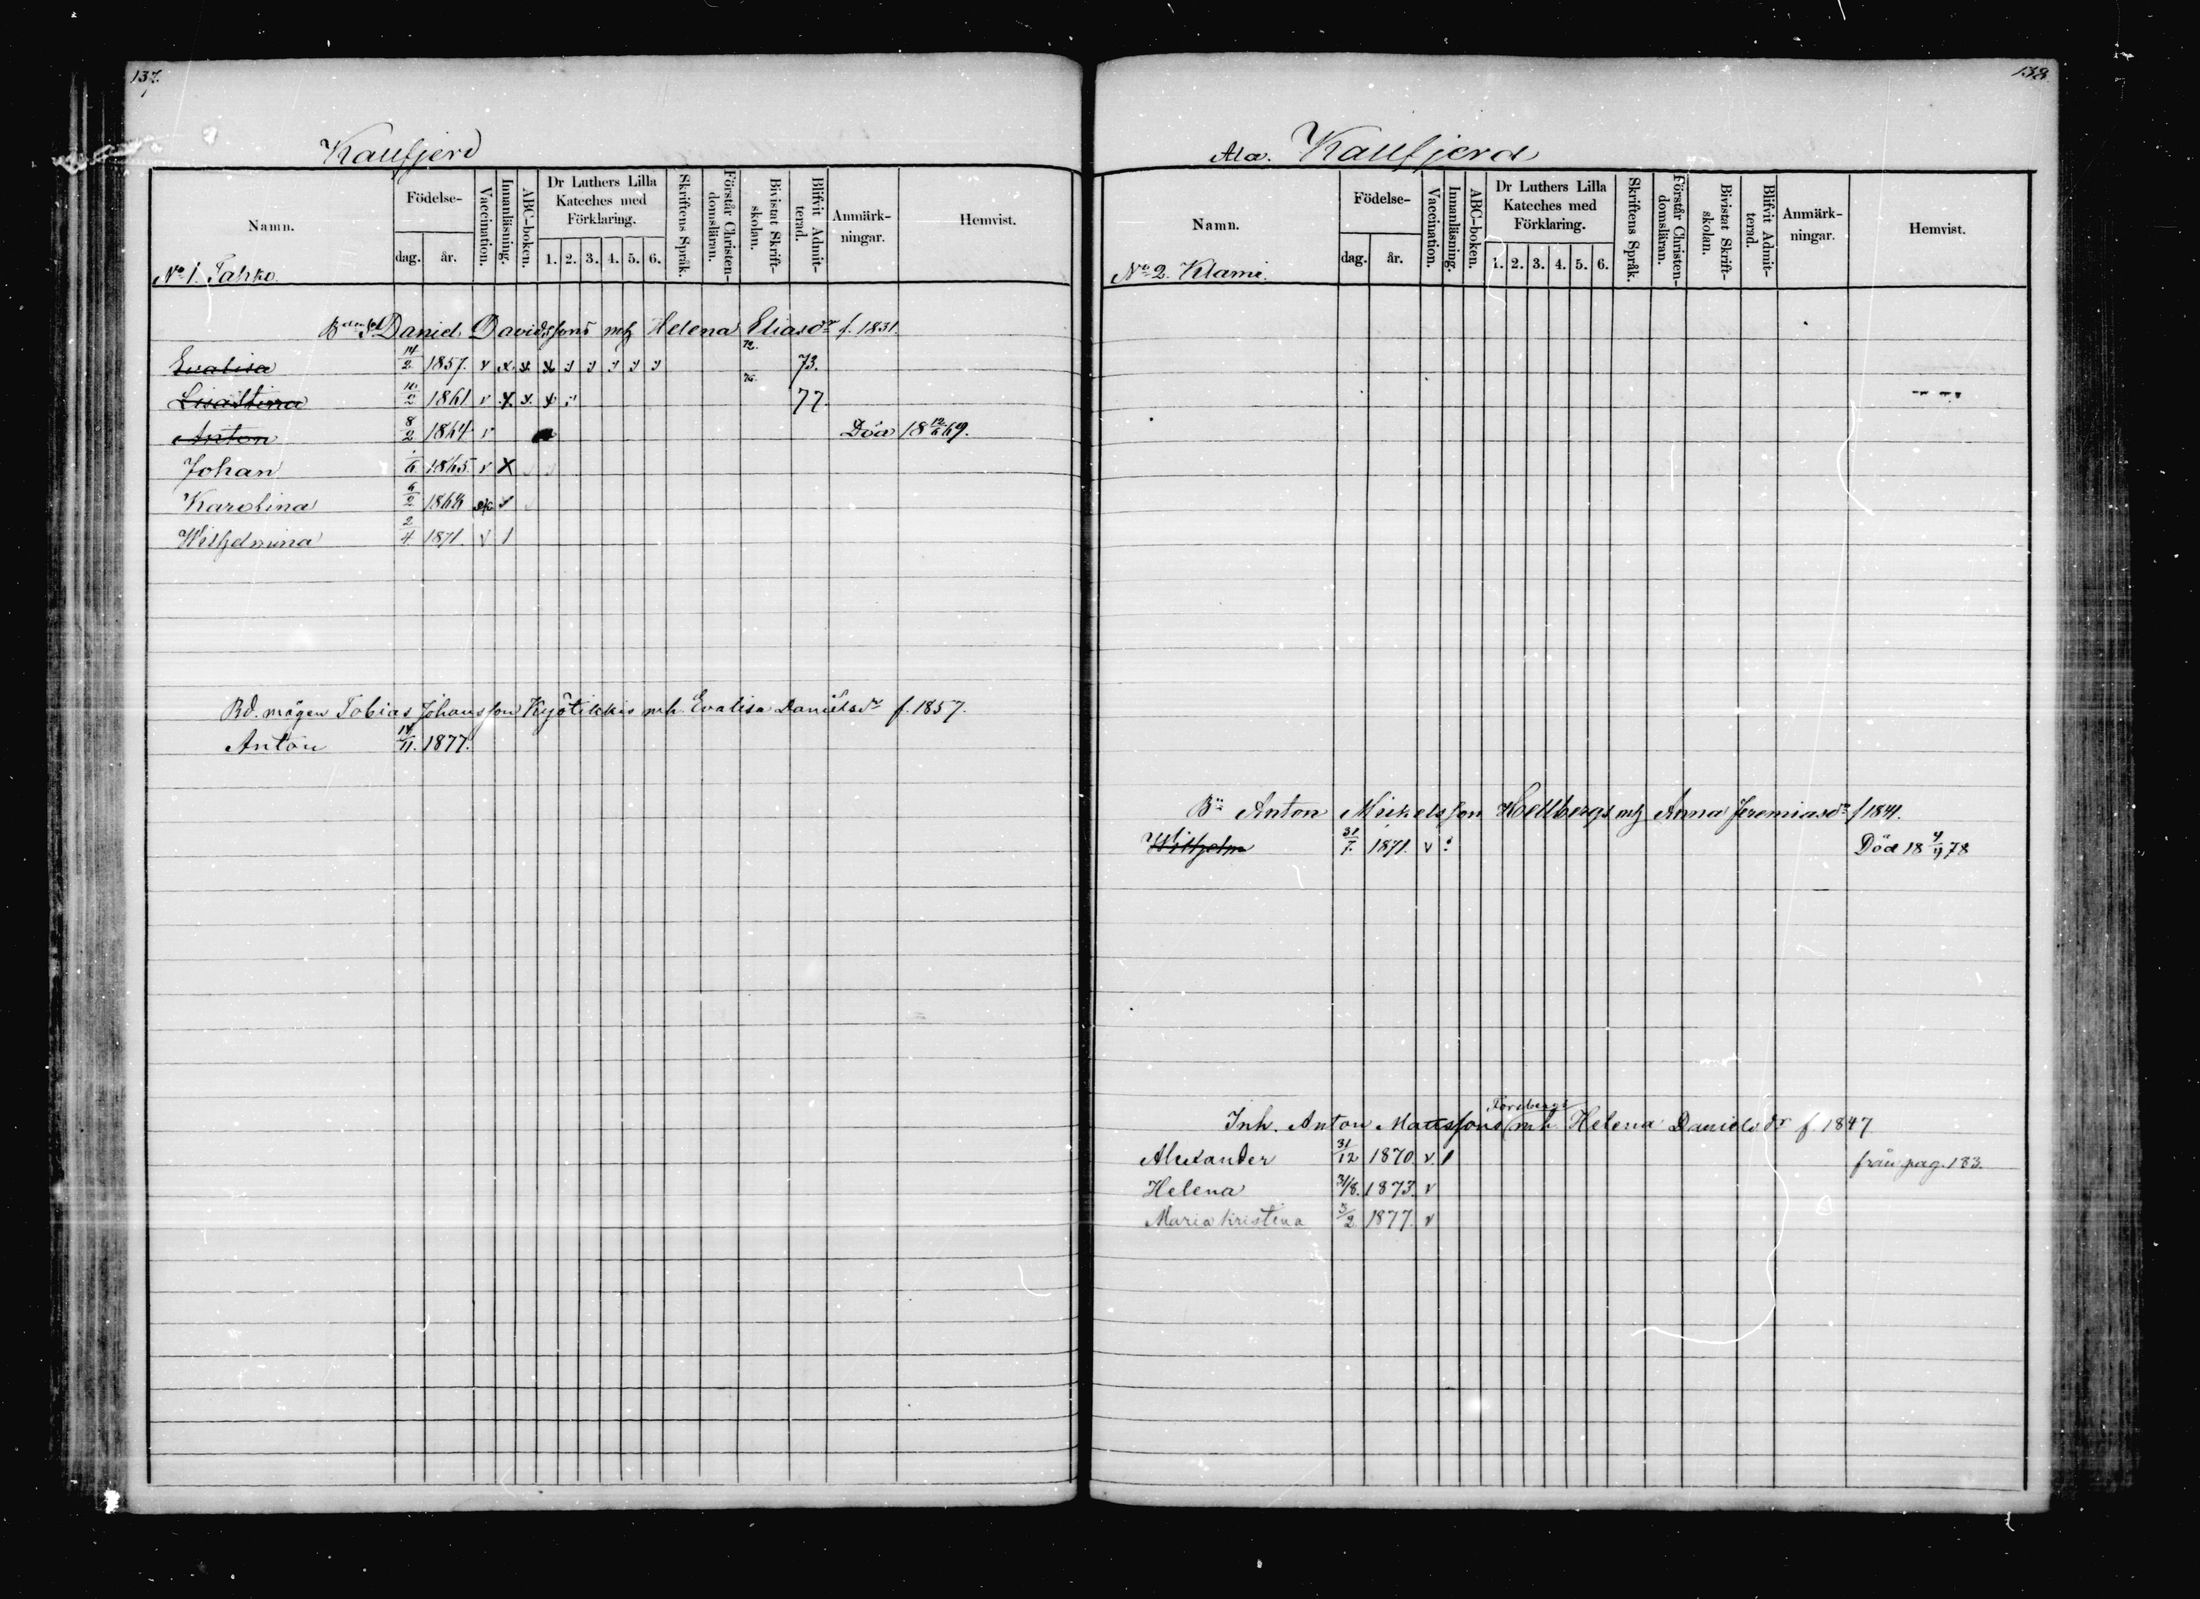 137.
Kaufjerd
Namn.
Födelse-
dag.
år.
Vaccination.
Innanläsning.
ABC-boken.
Dr Luthers Lilla
Kateches med
Förklaring.
1. 2. 3. 4. 5. 6.
Skriftens Språk.
Förstår Christen-
domsläran.
Bivistat Skrift-
skolan.
Blifvit Admit-
terad.
Anmärk-
ningar.
Hemvist.
No 1. Tahko.
Daniel Davidssons mh Helena Eliasdr f. 1831.
Evalisa 14/2 1857. v x. x. x 72. 73.
Lisa Stina 2 1861 v x. x. x 77.
Anton 8/2 1864 v Död 18 69.
Johan 6 1865. v x
Karolina 6/2 1868
Wilhelmina 2/4 1871. v 1
Bd. mågen Tobias Johansson Kyötikkis mh. Evalisa Danielsdr f. 1857.
Anton 14/11. 1877.
138.
Ala. Kaufjerd
Namn.
Födelse-
dag.
år.
Vaccination.
Innanläsning.
ABC-boken.
Dr Luthers Lilla
Kateches med
Förklaring.
1. 2. 3. 4. 5. 6.
Skriftens Språk.
Förstår Christen-
domsläran.
Bivistat Skrift-
skolan.
Blifvit Admit-
terad.
Anmärk-
ningar.
Hemvist.
No 2. Klami.
Anton Mickelsson Hellbergs mh Anna Jeremiasdr f 1841.
Wilhelm 31/7. 1871. v Död 18 78
Forsbergs
Inh. Anton Matssons mh. Helena Danielsdr f. 1847
Alexander 31/12 1870 v. 1 från pag. 183.
Helena 31/8. 1873. v
Maria Kristina 3/2. 1877. v